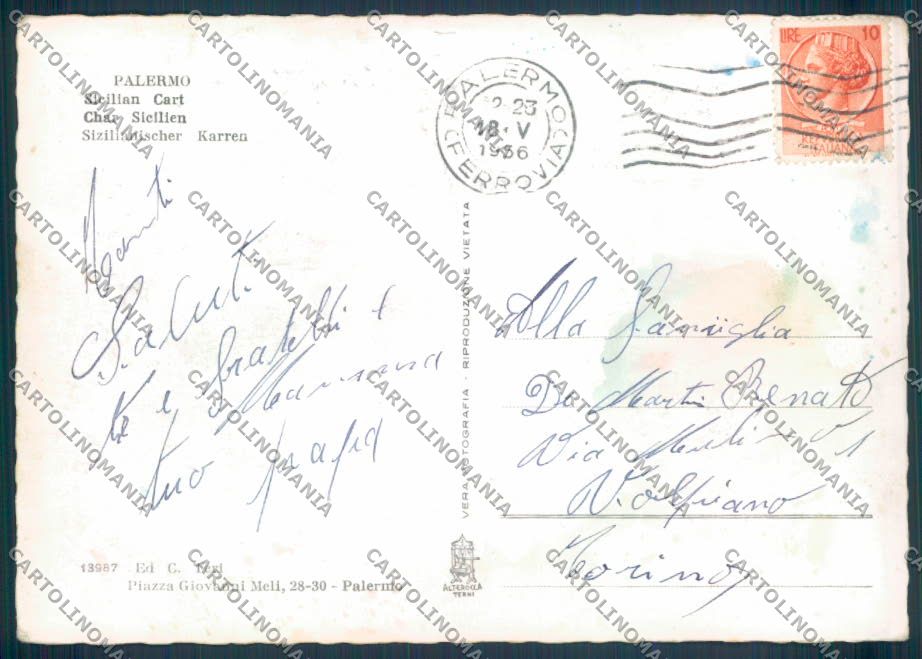 PALERMO
Sicilian Cart
Char Sicilien
Sizilianischer Karren
PALERMO
FERROVIA
18·V
1956
LIRE 10
Tanti
Saluti
te e fratelli e
Mamma
tuo papà
VERA FOTOGRAFIA - RIPRODUZIONE VIETATA
Alla Famiglia
De Martin Renato
Via
Volpiano
Torino
13987 Ed C.
Piazza Giovanni Meli, 28-30 - Palermo
ALTEROCCA
TERNI
CARTOLINOMANIA